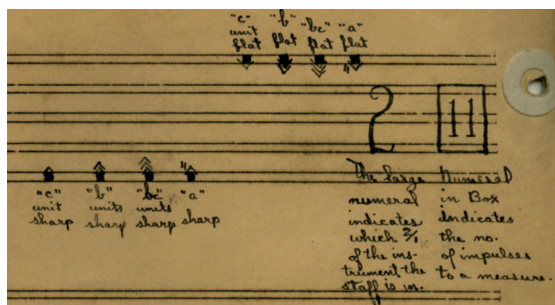 "c" "b" "bc" "a"
unit flat flat flat
flat
2 11
"c" "b" "bc" "a"
unit units units sharp
sharp sharp sharp
The large
numeral
indicates
which 2/1
of the ins-
trument the
staff is in.
Numeral
in Box
indicates
the no.
of impulses
to a measure.